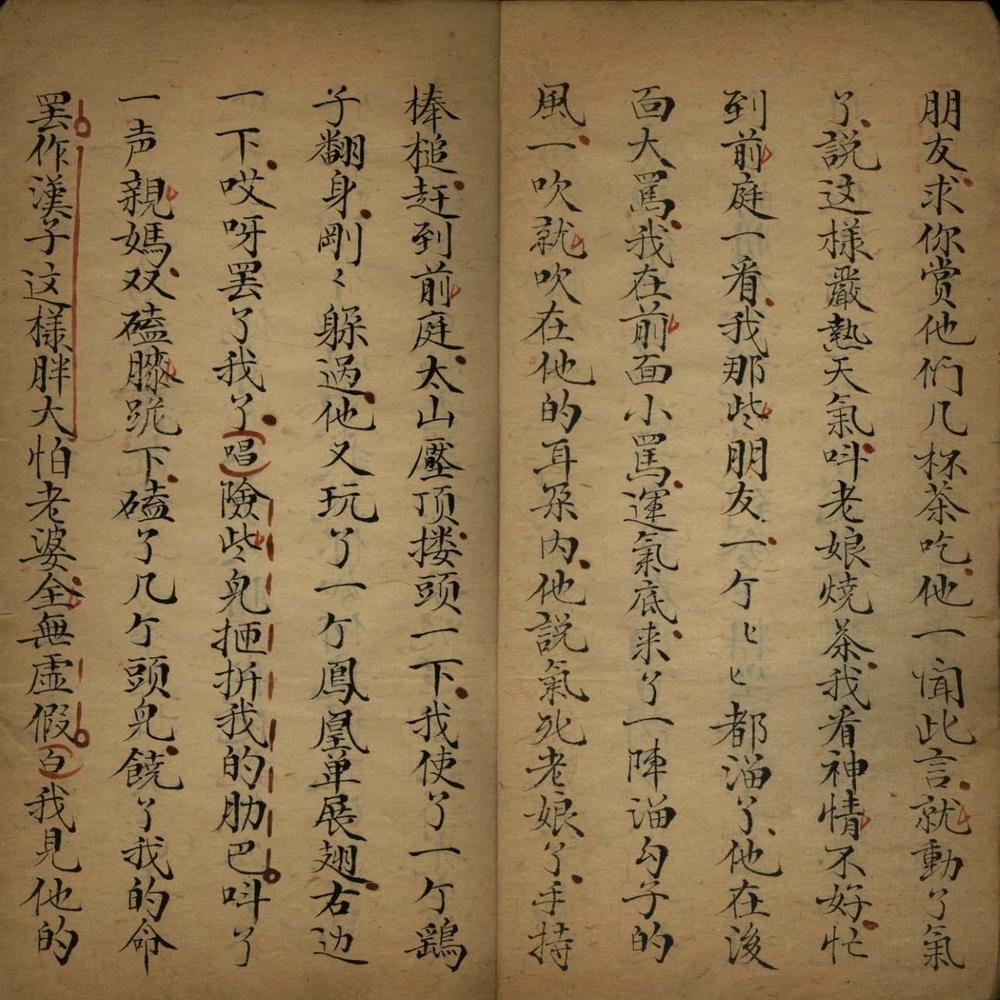 朋友求你赏他们几杯茶吃他一闻此言就動了氣
了說这樣嚴熱天氣呌老娘燒茶我看神情不好忙
到前庭一看我那些朋友一个〻〻都溜了他在後
面大罵我在前面小罵運氣底来了一陣溜勾子的
風一吹就吹在他的耳朶内他說氣死老娘了手持
棒槌赶到前庭太山壓顶搂頭一下我使了一个鷄
子翻身剛〻躱過他又玩了一个鳳凰单展翅右边
一下哎呀罢了我了唱險些皃拪拚我的肋巴呌了
一声親媽双磕膝跪下磕了几个頭皃饒了我的命
罢作漢子这樣胖大怕老婆全無虛假白我見他的